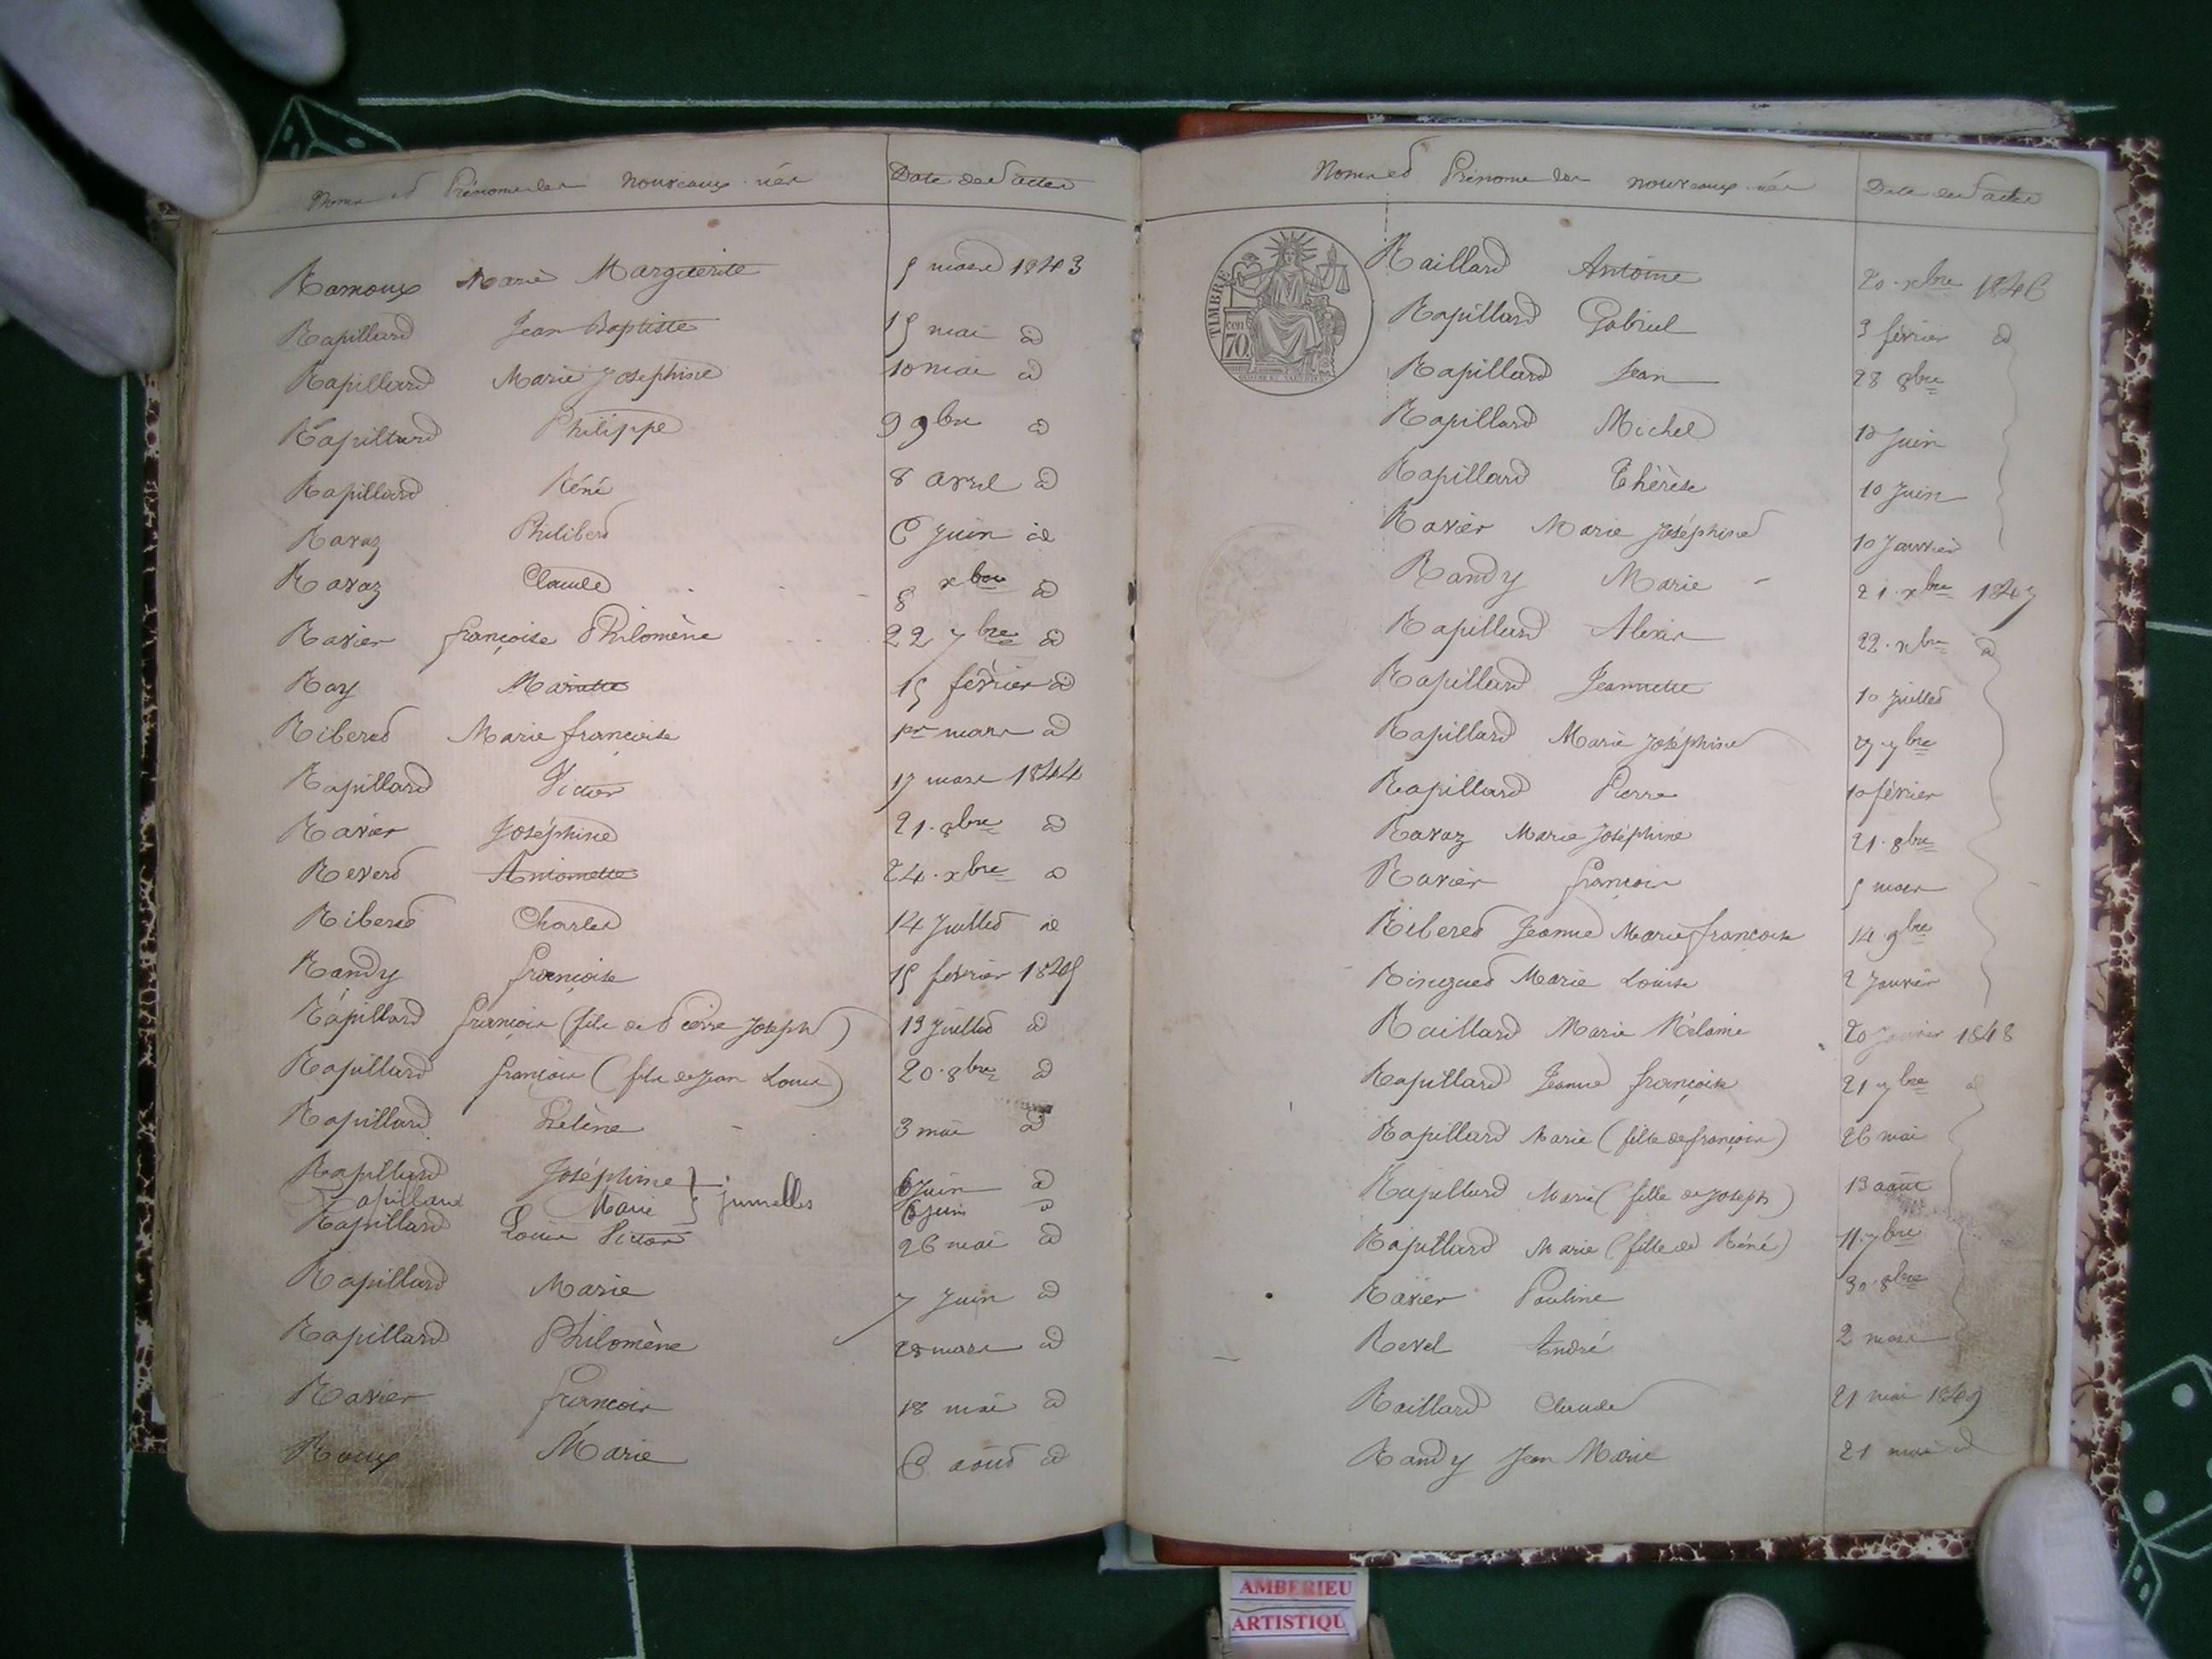 Noms et Prénoms des nouveaux-nés Date des actes
Ramoux Marie Marguerite 5 mars 1843
Rapillard Jean-Baptiste 15 mai id
Rapillard Marie Josephine 10 mai id
Rapillard Philippe 9 9bre id
Rapillard Réné 8 avril id
Ravaz Philibert 6 Juin id
Ravaz Claude 8 xbre id
Ravier françoise Philomène 22 7bre id
Ray Mariette 15 février id
Riberet Marie françoise 1er mars id
Rapillard Victor 17 mars 1844
Ravier Joséphine 21 . 8bre id
Reverd Antoinette 24 . xbre id
Riberet Charles 14 Juillet id
Randy françoise 15 février 1845
Rapillard françois (fils de Pierre Joseph) 13 Juillet id
Rapillard françois (fils de Jean Louis) 20 . 8bre id
Rapillard Hélène 3 mai id
Rapillard Joséphine 6 Juin id
Rapillard Marie } jumelles 6 Juin id
Rapillard Louis Victor 26 mai id
Rapillard Marie 7 Juin id
Rapillard Philomène 28 mars id
Ravier françois 18 mai id
Roux Marie 6 août id
Noms et Prénoms des nouveaux-nés Date des actes
TIMBRE
70
Raillard Antoine 20 . xbre 1846
Rapillard Gabriel 3 février id
Rapillard Jean 28 8bre
Rapillard Michel Juin
Rapillard Thérèse 10 Juin
Ravier Marie Joséphine 10 Janvier
Randy Marie 21 . xbre 1847
Rapillard Alexis 22 . xbre id
Rapillard Jeannette 10 Juillet
Rapillard Marie Joséphine 27 . 7bre
Rapillard Pierre 10 février
Ravaz Marie Joséphine 21 . 8bre
Ravier françois 5 mars
Riberet Jeanne Marie françoise 14 . 9bre
Ringuet Marie Louise 2 Janvier
Raillard Marie Mélanie 20 Janvier 1848
Rapillard Jeanne françoise 21 7bre id
Rapillard Marie (fille de françois) 26 mai
Rapillard Marie (fille de Joseph) 13 août
Rapillard Marie (fille de Réné) 11 . 7bre
Ravier Pauline 30 . 8bre
Revel André 2 mars
Raillard Claude 21 mai 1849
Randy Jean Marie 21 mai id
AMBERIEU
ARTISTIQU